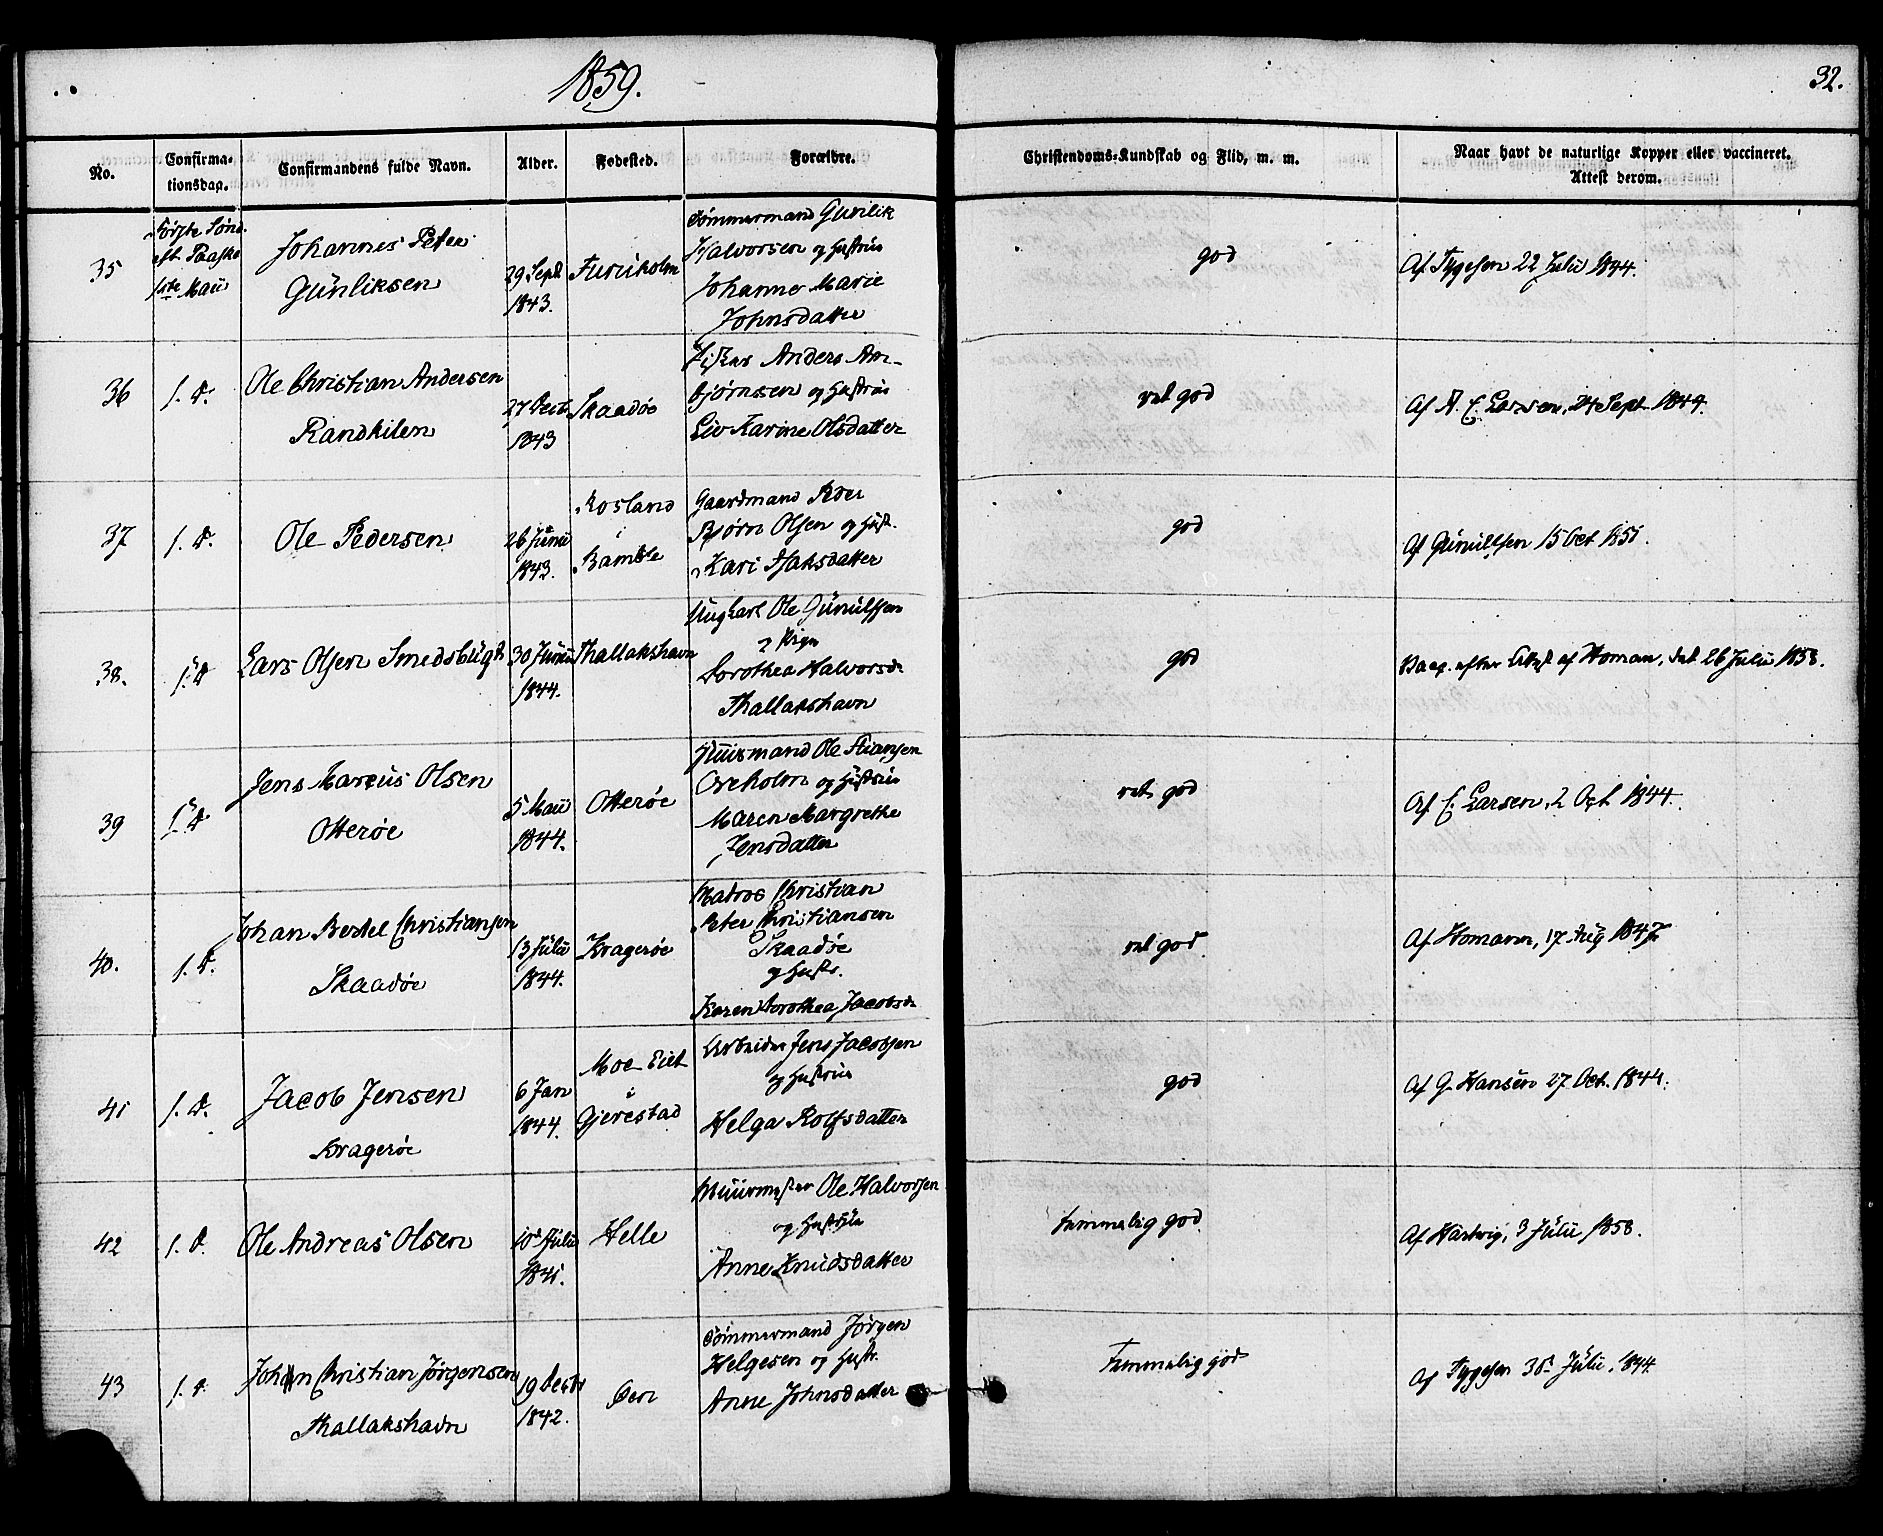 1859.
32.
No.
Confirma-
tionsdag.
Confirmandens fulde Navn.
Alder.
Fødested.
Forældre.
Christendoms-Kundskab og Flid, m. m.
Naar havt de naturlige Kopper eller vaccineret.
Attest derom.
35
Første Sønd.
eft. Paaske
1ste Maii
Johannes Peter
Gunliksen
29 Sept
1843.
Furuholm
Tømmermand Gunlik
Halvorsen og Hustrue
Johanne Marie
Johnsdatter
god
Af Tygesen 22 Julii 1844.
36
s. D.
Ole Christian Andersen
Randkilen
27 Decb.
1843
Skaadøe
Fisker Anders Arn-
bjørnsen og Hustrue
Liv Karine Olsdatter
vel god
Af A. C. Larsen, 24 Sept. 1844.
37
s. D.
Ole Pedersen
26 Junii
1843.
Rosland
i
Bamble
Gaardmand Peder
Bjørn Olsen og Hust.
Kari Isaksdatter
god
Af Gunulfsen 15 Oct 1851.
38.
s. D
Lars Olsen Smedsbugt
30 Junii
1844.
Thallakshavn
Ungkarl Ole Gunulfsen
& Pige
Dorothea Halvorsd.
Thallakshavn
god
Vacc. efter Attest af Homan, dat 26 Julii 1858.
39
s. D
Jens Marcus Olsen
Otterøe
5 Maii
1844.
Otterøe
Huusmand Ole Stiansen
Oreholm og Hustrue
Maren Margrethe
Jensdatter
vel god
Af C. Larsen, 2 Oct 1844.
40.
s. D.
Johan Bertel Christiansen
Skaadøe
13 Julii
1844.
Kragerøe
Matros Christian
Peter Christiansen
Skaadøe
og Hustr.
Karen Dorothea Jacobsd.
vel god
Af Homann, 17 Aug 1847.
41
s. D.
Jacob Jensen
Kragerøe
6 Jan
1844.
Moe Eiet
i
Gjerestad
Arbeider Jens Jacobsen
og Hustrue
Helga Rolfsdatter
god
Af G. Hansen 27 Oct. 1844.
42
s. D.
Ole Andreas Olsen
10 Julii
1841.
Helle
Muurmester Ole Halvorsen
og Hustrue
Anne Knudsdatter
temmelig god
Af Hartvig, 3 Julii 1858.
43
s. D.
Johan Christian Jørgensen
Thallakshavn
19 Decbr
1842.
Øen
Tømmermand Jörgen
Helgesen og Hustr.
Anne Johnsdatter
Temmelig god
Af Tygesen Julii, 1844.